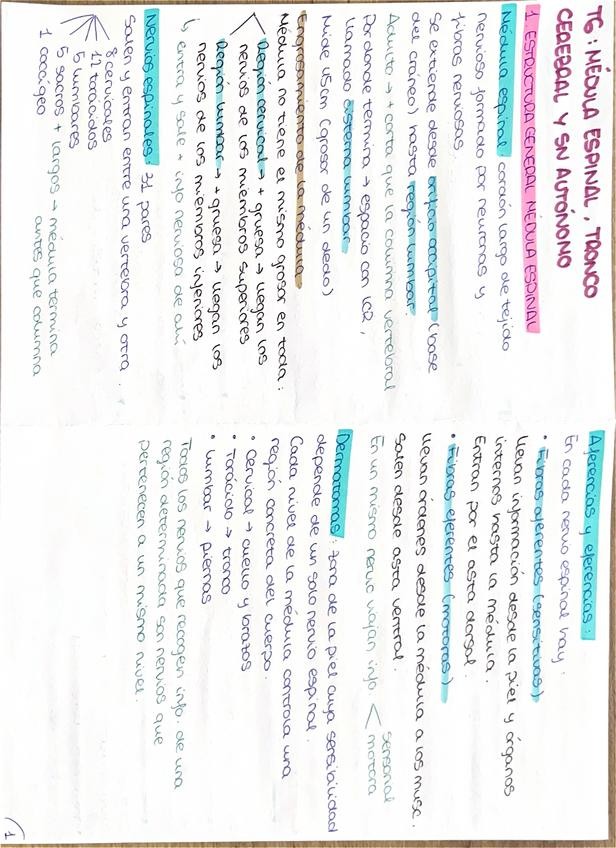 T6: MÉDULA ESPINAL, TRONCO
CEREBRAL Y SN AUTÓNOMO
1. ESTRUCTURA GENERAL MÉDULA ESPINAL
Médula espinal: cordón largo de tejido
nervioso formado por neuronas y
fibras nerviosas.
Se extiende desde orificio occipital (base
del cráneo) hasta región lumbar.
Adulto → + corta que la columna vertebral
Por donde termina → espacio con LCR,
llamado cisterna lumbar
Mide 45cm (grosor de un dedo)
Engrosamiento de la médula
Médula no tiene el mismo grosor en toda:
Región cervical → + gruesa → llegan los
nervios de los miembros superiores
Región lumbar → + gruesa → llegan los
nervios de los miembros inferiores
↳ entra y sale + info nerviosa de ahí
Nervios espinales: 31 pares
Salen y entran entre una vertebra y otra.
8 cervicales
12 torácicos
5 lumbares
5 sacros + largos → médula termina
antes que columna
1 coccígeo
Aferencias y eferencias:
En cada nervio espinal hay:
• Fibras aferentes (sensitivas)
llevan información desde la piel y órganos
internos hasta la médula.
Entran por el asta dorsal.
• Fibras eferentes (motoras)
llevan órdenes desde la médula a los musc.
Salen desde asta ventral.
En un mismo nervio viajan info. < sensorial
motora
Dermatomas: zona de la piel cuya sensibilidad
depende de un solo nervio espinal.
Cada nivel de la médula controla una
región concreta del cuerpo.
• Cervical → cuello y brazos
• Torácico → tronco
• Lumbar → piernas
Todos los nervios que recogen info. de una
región determinada son nervios que
pertenecen a un mismo nivel.
1